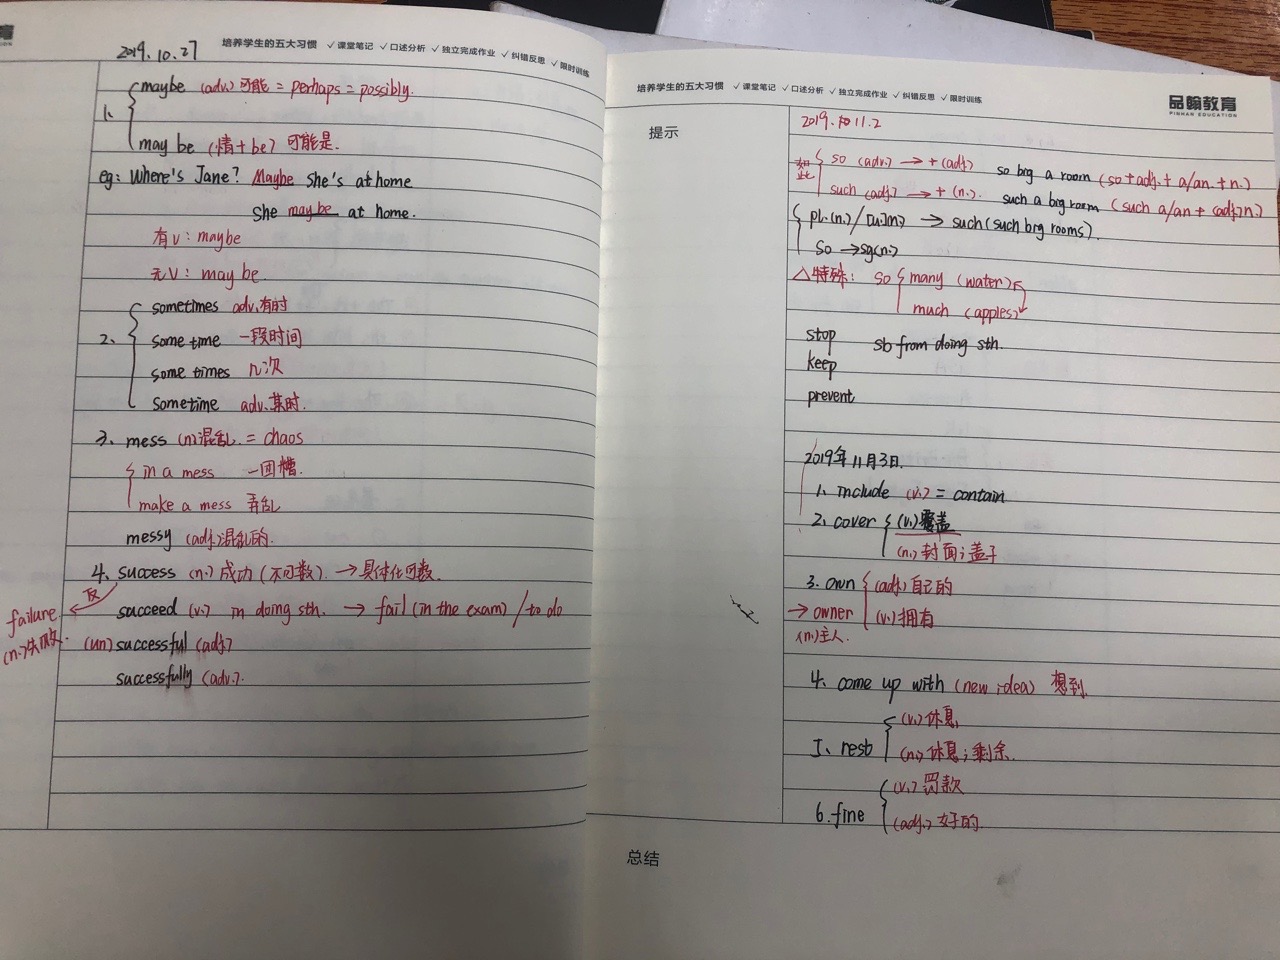 育
2019.10.27
培养学生的五大习惯 ✓课堂笔记 ✓口述分析 ✓独立完成作业 ✓纠错反思 ✓限时训练
1. maybe (adv.) 可能 = perhaps = possibly.
may be (情+be) 可能是.
eg: Where's Jane? Maybe she's at home
She may be at home.
有v: maybe
无v: may be.
2. sometimes adv.有时
some time 一段时间
some times 几次
sometime adv.某时.
3. mess (n.)混乱. = chaos
in a mess 一团糟.
make a mess 弄乱
messy (adj.)混乱的.
4. success (n.) 成功 (不可数). → 具体化可数.
反
failure.
(n.)失败.
succeed (v.) in doing sth. → fail (in the exam) / to do
(un) successful (adj.)
successfully (adv.).
培养学生的五大习惯 ✓课堂笔记 ✓口述分析 ✓独立完成作业 ✓纠错反思 ✓限时训练
品翰教育
PINHAN EDUCATION
提示
2019. 11.2
如此
so (adv.) → + (adj.) so big a room (so + adj. + a/an. + n.)
such (adj.) → + (n.). such a big room (such a/an + (adj.) n.)
pl.(n.) / [u](n.) → such (such big rooms).
so → sg(n.)
△特殊: so many (water)
much (apples)
stop sb from doing sth.
keep
prevent
2019年11月3日.
1. include (v.) = contain
2. cover (v.) 覆盖
(n.) 封面; 盖子
3. own (adj.) 自己的
→ owner (v.) 拥有
(n.)主人.
4. come up with (new idea) 想到
5. rest (v.) 休息
(n.) 休息; 剩余.
6. fine (v.) 罚款
(adj.) 好的.
总结